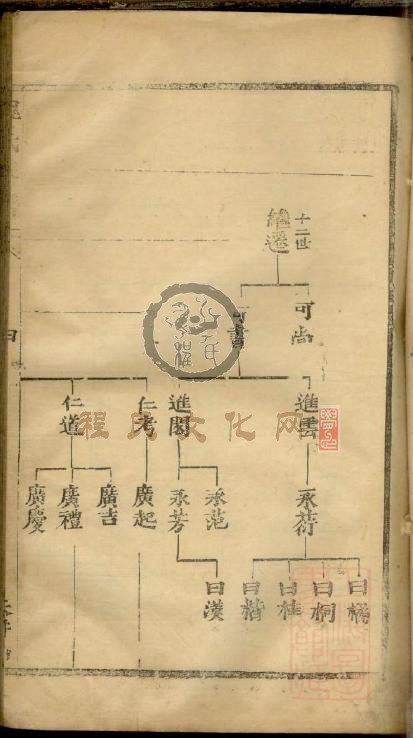 十二世
繼遷
可尚
可書
進雲
進閣
仁考
仁道
承荷
承范
承芳
廣起
廣吉
廣禮
廣慶
曰橘
曰桐
曰桂
曰楷
曰漢
程氏文化网